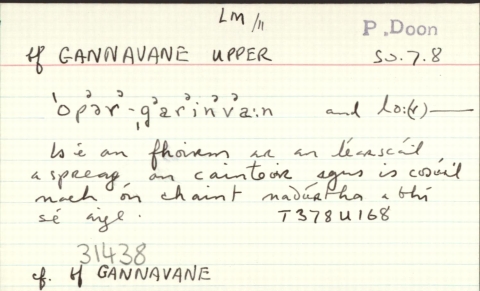 LM/11
P. Doon
tf GANNAVANE UPPER
SO.7.8
ˈopər-ˌgarinˈva:n and lo:(r)—
Is é an fhoirm ar an léarscáil
a spreag an cainteoir agus is cosúil
nach ón chaint nádúrtha a bhí
sé aige. T378U168
31438
cf. tf GANNAVANE